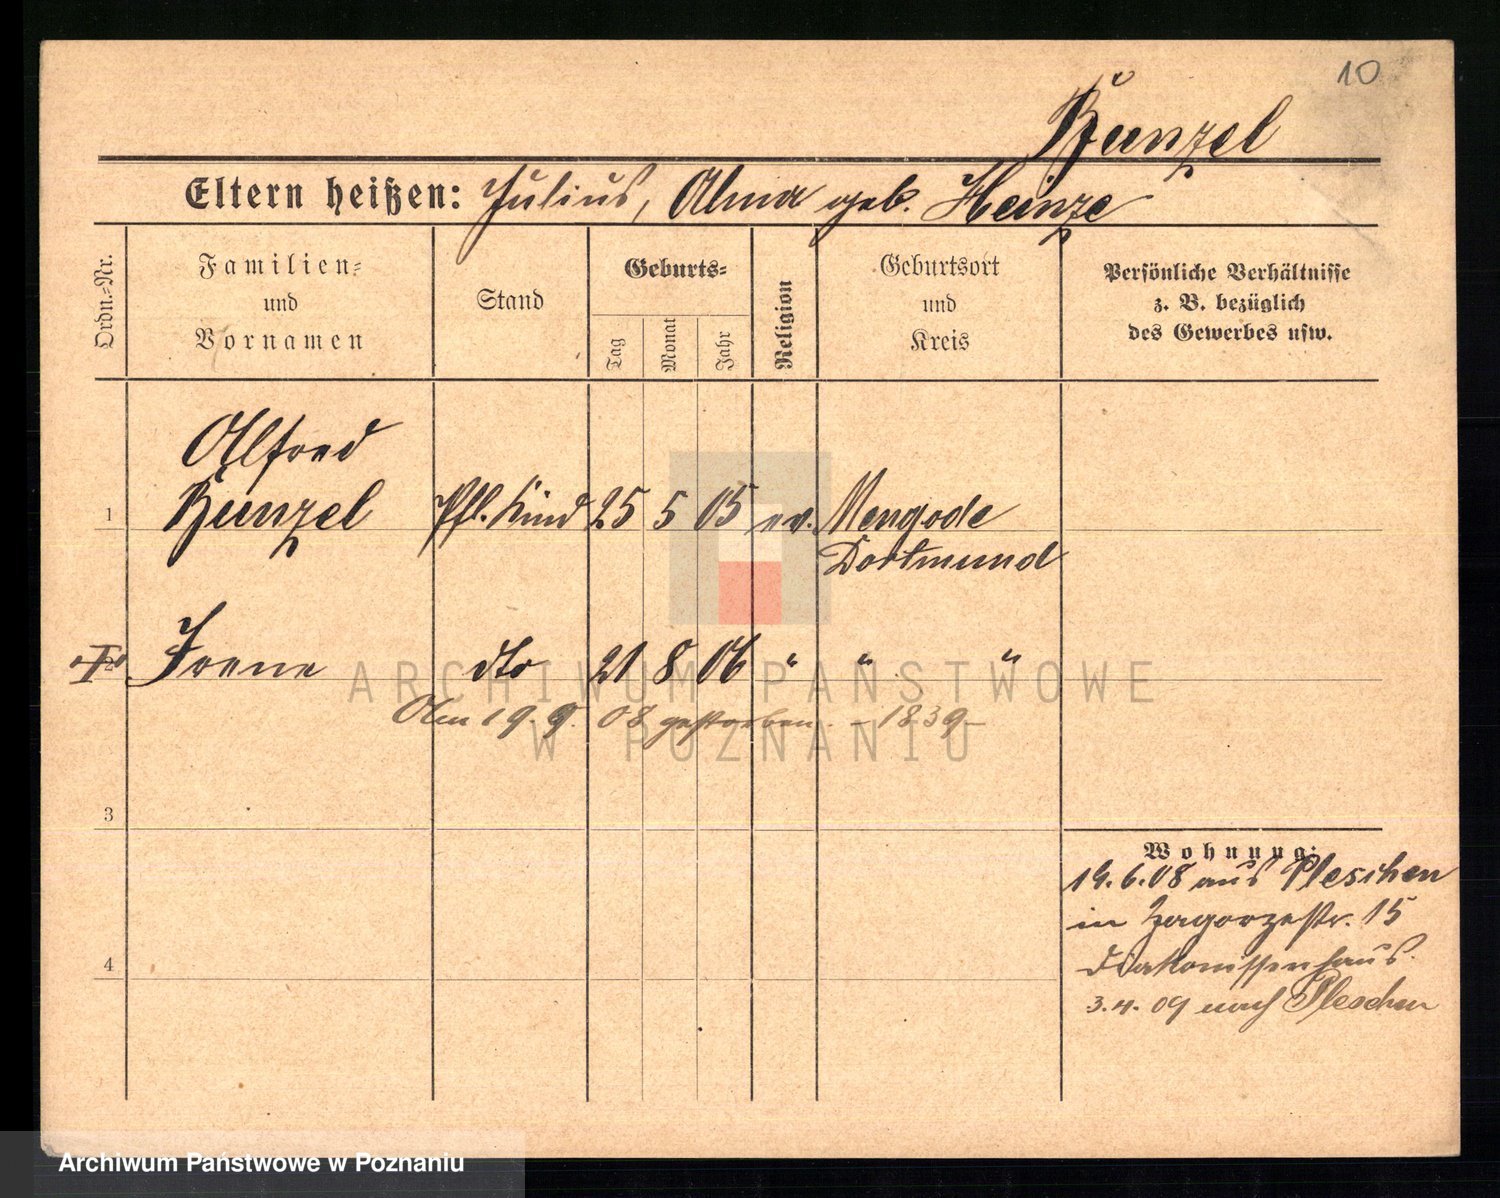 10
Künzel
Eltern heißen: Julius, Alma geb. Heinze
Ordn.-Nr.
Familien-
und
Vornamen
Stand
Geburts-
Tag
Monat
Jahr
Religion
Geburtsort
und
Kreis
Persönliche Verhältnisse
z. B. bezüglich
des Gewerbes usw.
Alfred
1 Künzel Pfl. Kind 25 5 05 ev. Mengede
Dortmund
2 Irene dto 21 8 06 " " "
Am 19. 9. 08 gestorben. - 1839 -
3
4
Wohnung:
19.6.08 aus Pleschen
in Zagorzestr. 15
Diakonissenhaus.
3.4.09 nach Pleschen
ARCHIWUM PAŃSTWOWE
W POZNANIU
Archiwum Państwowe w Poznaniu